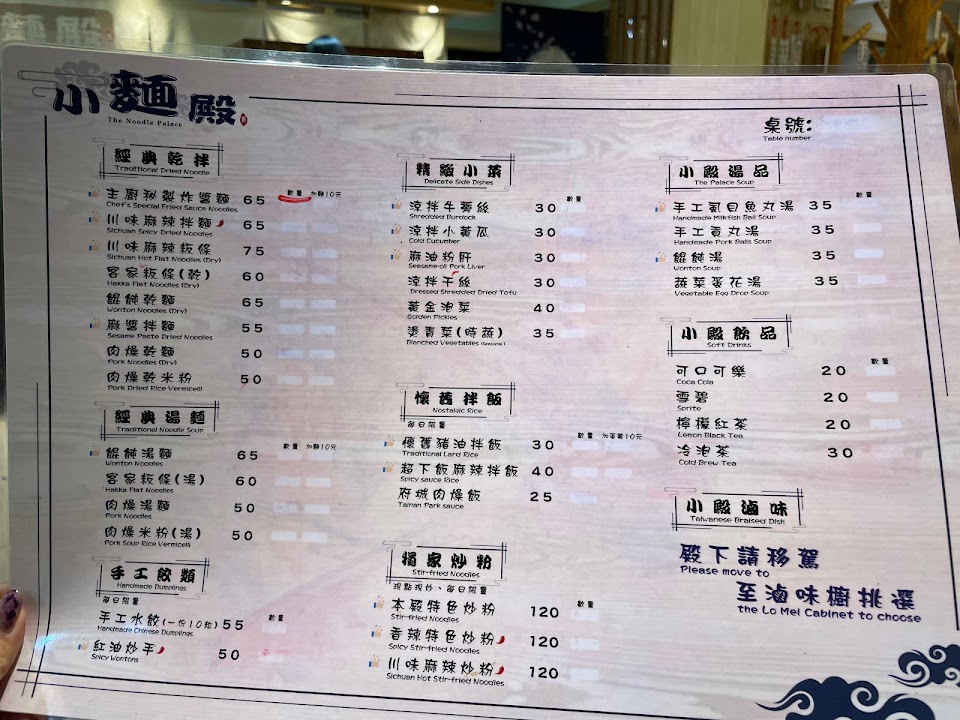 小麵殿
The Noodle Palace
桌號:
Table number
經典乾拌
Traditional Dried Noodle
數量 加麵10元
主廚秘製炸醬麵 65
Chef's Special Fried Sauce Noodles
川味麻辣拌麵 65
Sichuan Spicy Dried Noodles
川味麻辣粄條 75
Sichuan Hot Flat Noodles (Dry)
客家粄條(乾) 60
Hakka Flat Noodles (Dry)
餛飩乾麵 65
Wonton Noodles (Dry)
麻醬拌麵 55
Sesame Paste Dried Noodles
肉燥乾麵 50
Pork Noodles (Dry)
肉燥乾米粉 50
Pork Dried Rice Vermicelli
經典湯麵
Traditional Noodle Soup
數量 加麵10元
餛飩湯麵 65
Wonton Noodles
客家粄條(湯) 60
Hakka Flat Noodles
肉燥湯麵 50
Pork Noodles
肉燥米粉(湯) 50
Pork Soup Rice Vermicelli
手工餃類
Handmade Dumplings
每日限量
數量
手工水餃(一份10粒) 55
Handmade Chinese Dumplings
紅油炒手 50
Spicy Wontons
精緻小菜
Delicate Side Dishes
數量
涼拌牛蒡絲 30
Shredded Burdock
涼拌小黃瓜 30
Cold Cucumber
麻油粉肝 30
Seasame-oil Pork Liver
涼拌干絲 30
Dressed Shredded Dried Tofu
黃金泡菜 40
Golden Pickles
燙青菜(時蔬) 35
Blanched Vegetables (Seasonal)
懷舊拌飯
Nostalgic Rice
每日限量
數量 加薑黃10元
懷舊豬油拌飯 30
Traditional Lard Rice
超下飯麻辣拌飯 40
Spicy sauce Rice
府城肉燥飯 25
Tainan Park sauce
獨家炒粉
Stir-fried Noodles
現點現炒、每日限量
數量
本殿特色炒粉 120
Stir-fried Noodles
香辣特色炒粉 120
Spicy Stir-fried Noodles
川味麻辣炒粉 120
Sichuan Hot Stir-fried Noodles
小殿湯品
The Palace Soup
數量
手工虱目魚丸湯 35
Handmade Milkfish Ball Soup
手工貢丸湯 35
Handmade Pork Balls Soup
餛飩湯 35
Wonton Soup
蔬菜蛋花湯 35
Vegetable Egg Drop Soup
小殿飲品
Soft Drinks
數量
可口可樂 20
Coca Cola
雪碧 20
Sprite
檸檬紅茶 20
Lemon Black Tea
冷泡茶 30
Cold Brew Tea
小殿滷味
Taiwanese Braised Dish
殿下請移駕
Please move to
至滷味櫥挑選
the Lo Mei Cabinet to choose